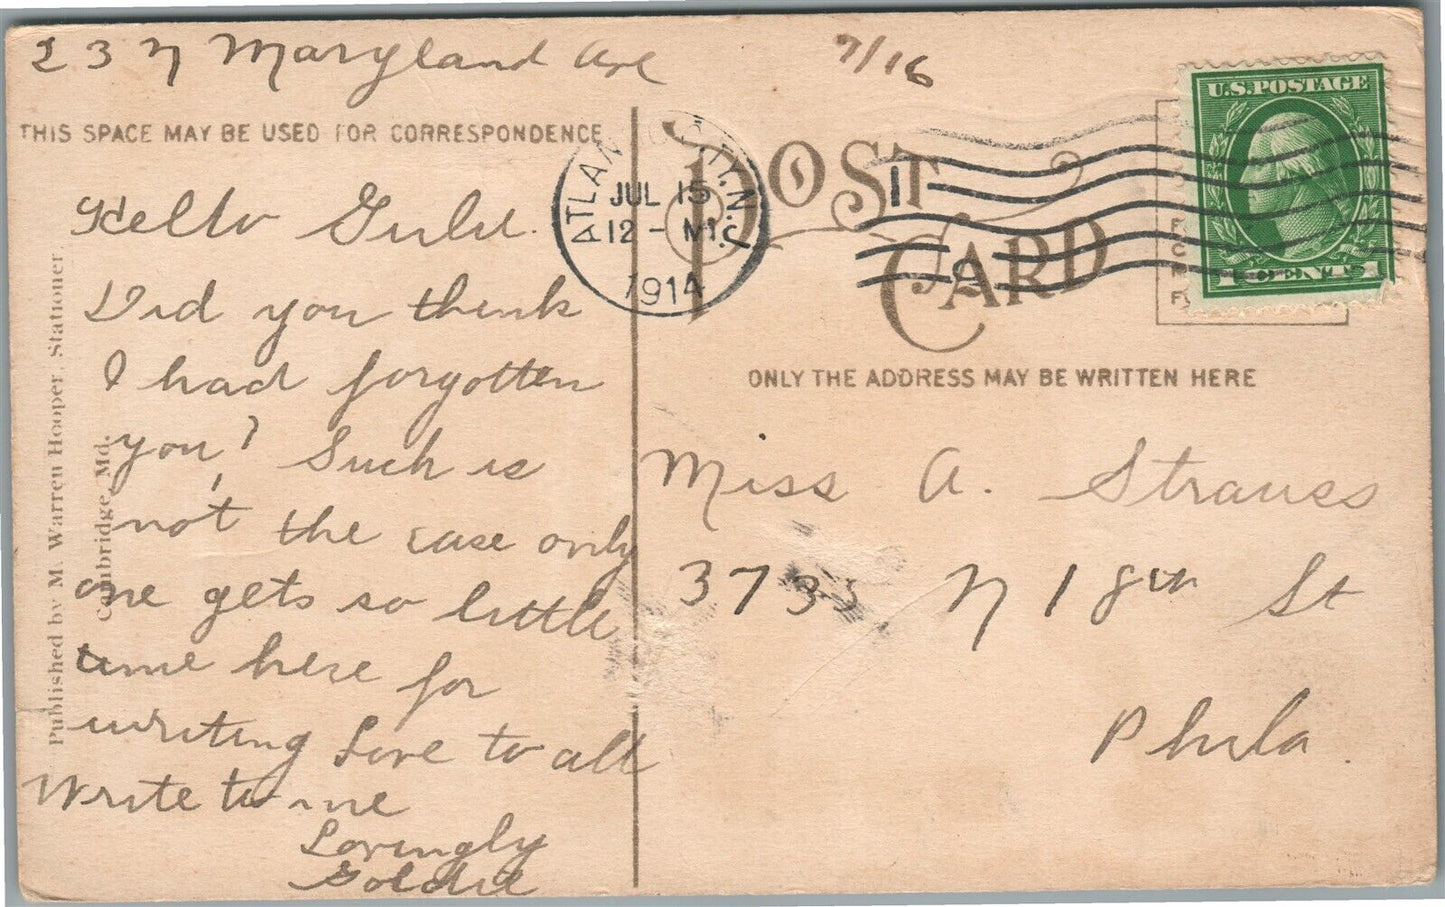 237 Maryland Ave
7/16
THIS SPACE MAY BE USED FOR CORRESPONDENCE
POST CARD
ATLANTIC CITY, N.J.
JUL 15
12 - M
1914
1
U.S. POSTAGE
1 CENT 1
ONLY THE ADDRESS MAY BE WRITTEN HERE
Published by M. Warren Hooper, Stationer,
Cambridge, Md.
Hello
Did you think
I had forgotten
you? Such is
not the case only
one gets so little
time here for
writing Love to all
Write to me
Lovingly
Goldie
Miss A. Strauss
3733 N 18th St
Phila